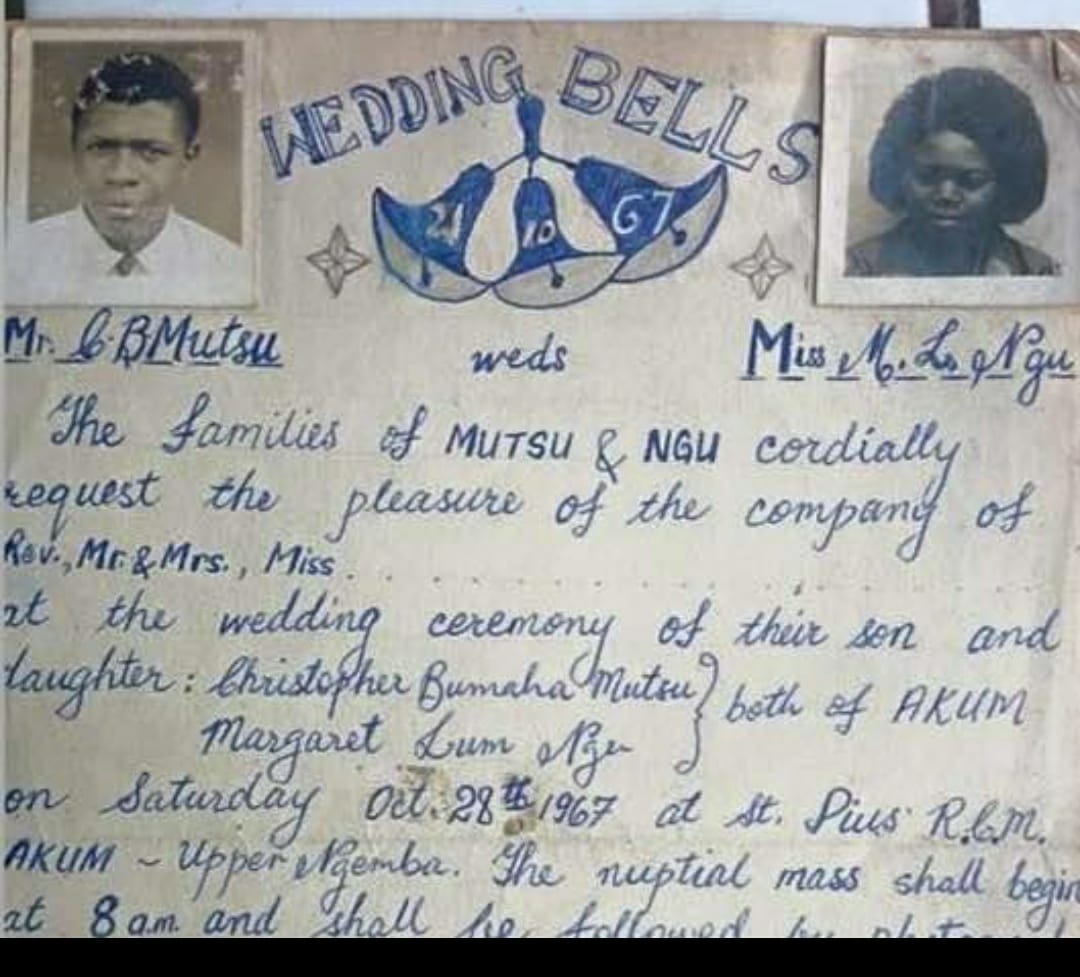 WEDDING BELLS
21 10 67
Mr. C. B Mutsu weds Miss M. L. Ngu
The families of MUTSU & NGU cordially
request the pleasure of the company of
Rev., Mr. & Mrs., Miss. . . . . . . . . . . . . . .
at the wedding ceremony of their son and
daughter: Christopher Bumaha Mutsu } both of AKUM
Margaret Lum Ngu
on Saturday Oct. 28th 1967 at St. Pius R.C.M.
AKUM ~ Upper Ngemba. The nuptial mass shall begin
at 8 a.m. and shall be followed by